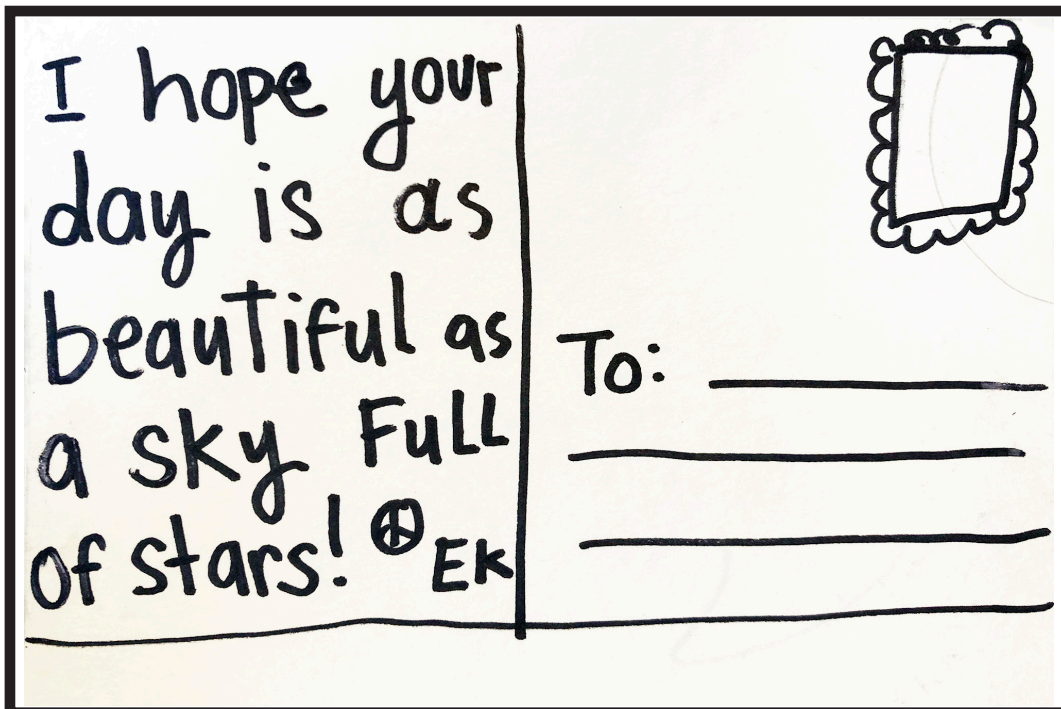 I hope your
day is as
beautiful as
a sky Full
of stars! ☮ EK
To: